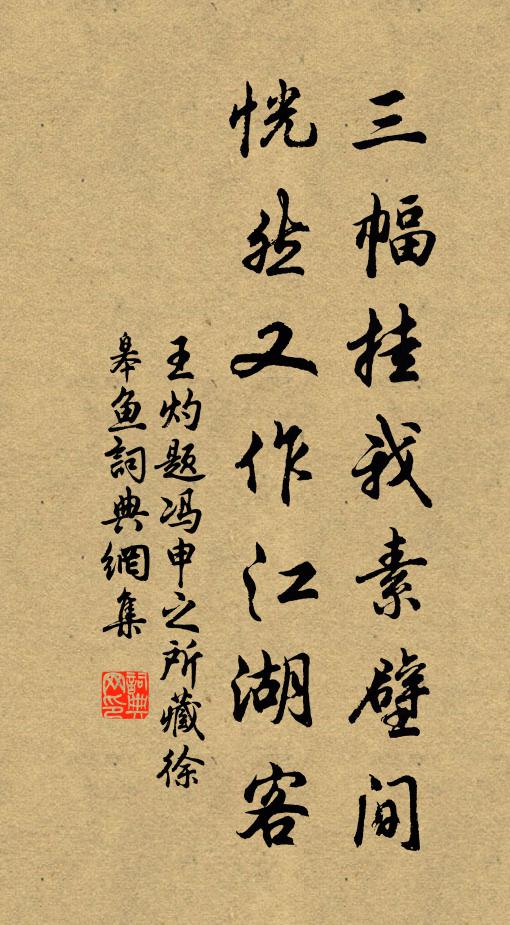 三幅挂我素壁间
恍然又作江湖客
王灼题冯申之所藏徐
皋鱼詞典網集
詞典網印